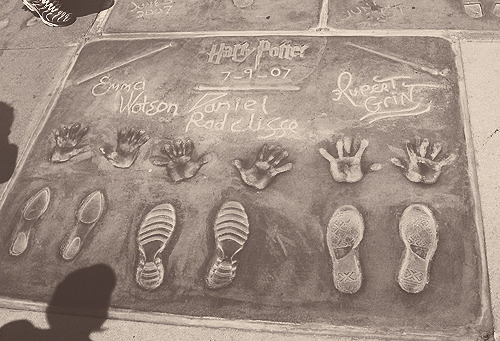 JUNE
2007
JUN
Harry Potter
7-9-07
Emma
Watson
Daniel
Radcliffe
RUPERT
GRINT